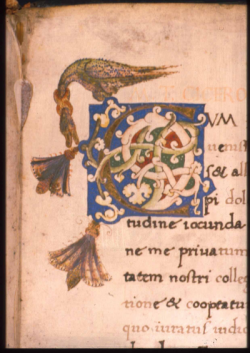 CVM
ueniss
s& all
pi dol
tudine iocunda
ne me priuatum
tatem nostri colle
tione & cooptatu
quo iuratus iudic